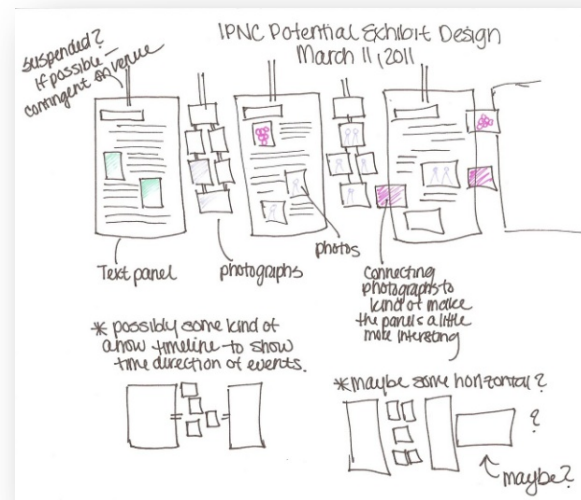 IPNC Potential Exhibit Design
March 11, 2011
suspended?
if possible -
contingent on venue
Text panel
photographs
photos
connecting
photographs to
kind of make
the panels a little
more interesting
* possibly some kind of
arrow timeline to show
time direction of events.
* maybe some horizontal?
?
maybe?